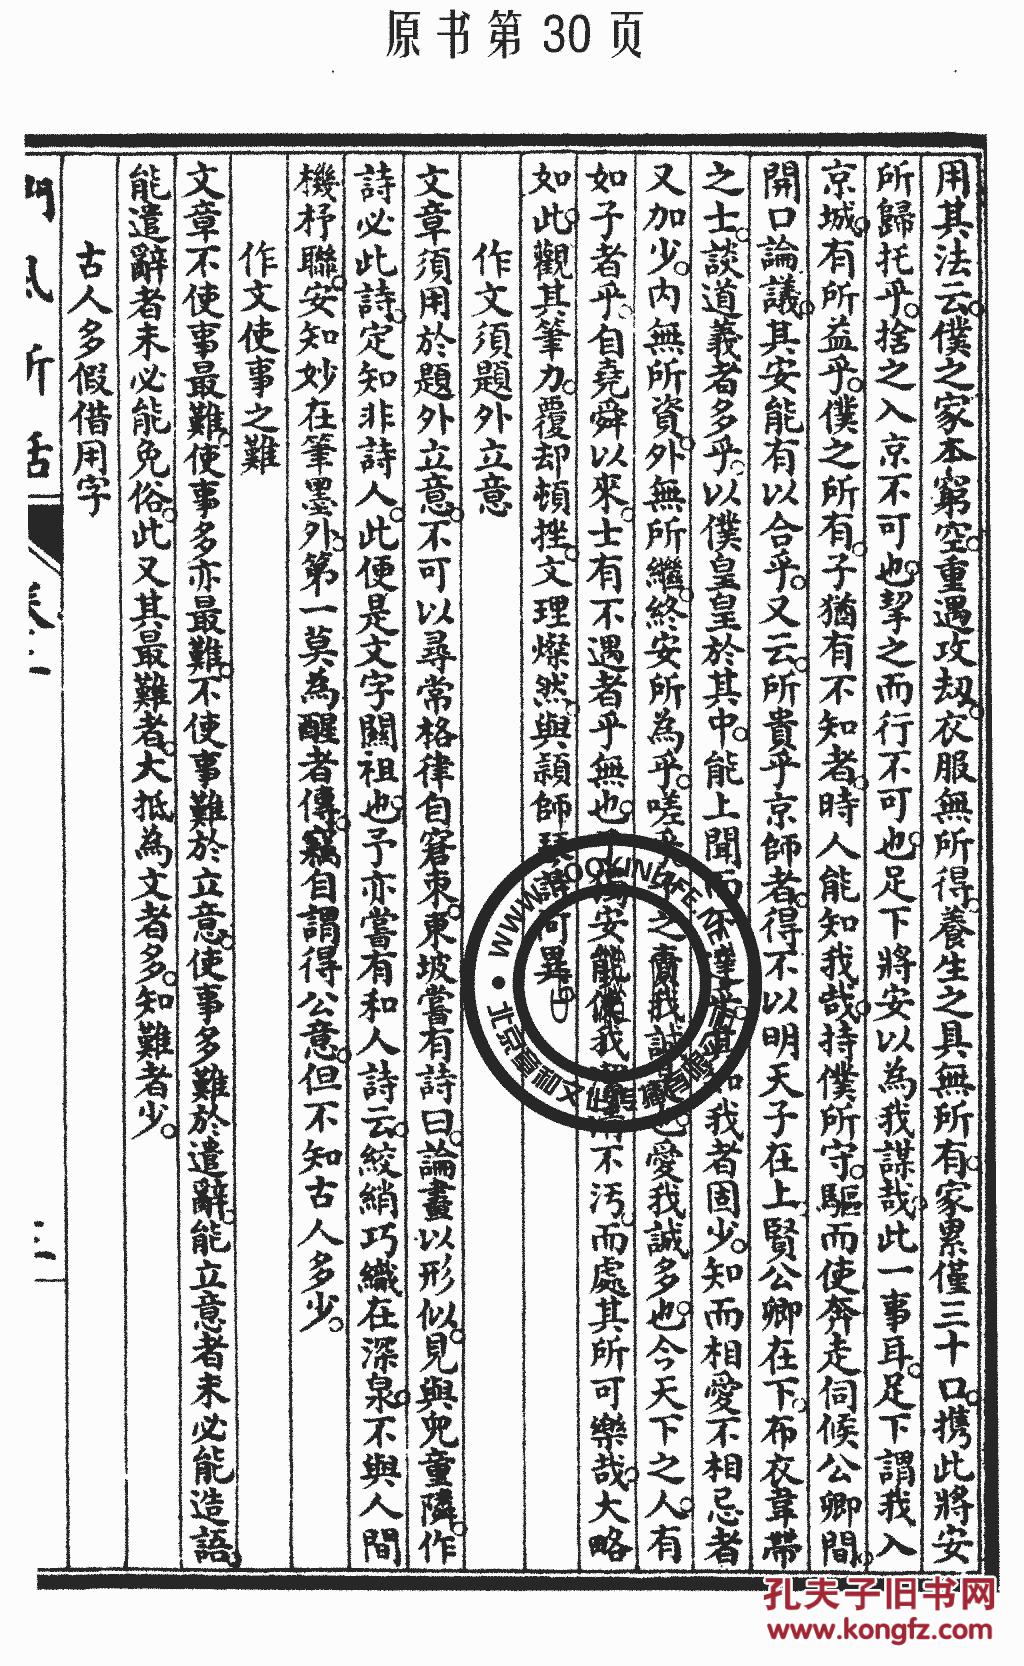 原书第30页
用其法云僕之家本窮空重遇攻刼衣服無所得養生之具無所有家累僅三十口携此將安
所歸托乎捨之入京不可也挈之而行不可也足下將安以為我謀哉此一事耳足下謂我入
京城有所益乎僕之所有子猶有不知者時人能知我哉持僕所守驅而使奔走伺候公卿間
開口論議其安能有以合乎又云所貴乎京師者得不以明天子在上賢公卿在下布衣韋帶
之士談道義者多乎以僕皇皇於其中能上聞而下達乎其知我者固少知而相愛不相忌者
又加少内無所資外無所繼終安所為乎嗟乎之責我誠愛我誠多也今天下之人有
如子者乎自堯舜以來士有不遇者乎無也安能使我不汚而處其所可樂哉大略
如此觀其筆力覆却頓挫文理燦然與穎師琴詩何異
作文須題外立意
文章須用於題外立意不可以尋常格律自窘束東坡嘗有詩曰論畫以形似見與兒童隣作
詩必此詩定知非詩人此便是文字關祖也予亦嘗有和人詩云絞綃巧織在深泉不與人間
機杼聯安知妙在筆墨外第一莫為醒者傳竊自謂得公意但不知古人多少
作文使事之難
文章不使事最難使事多亦最難不使事難於立意使事多難於遣辭能立意者未必能造語
能遣辭者未必能免俗此又其最難者大抵為文者多知難者少
古人多假借用字
卷一
二
WWW.BOOKINLIFE.NET
孔夫子旧书网
www.kongfz.com